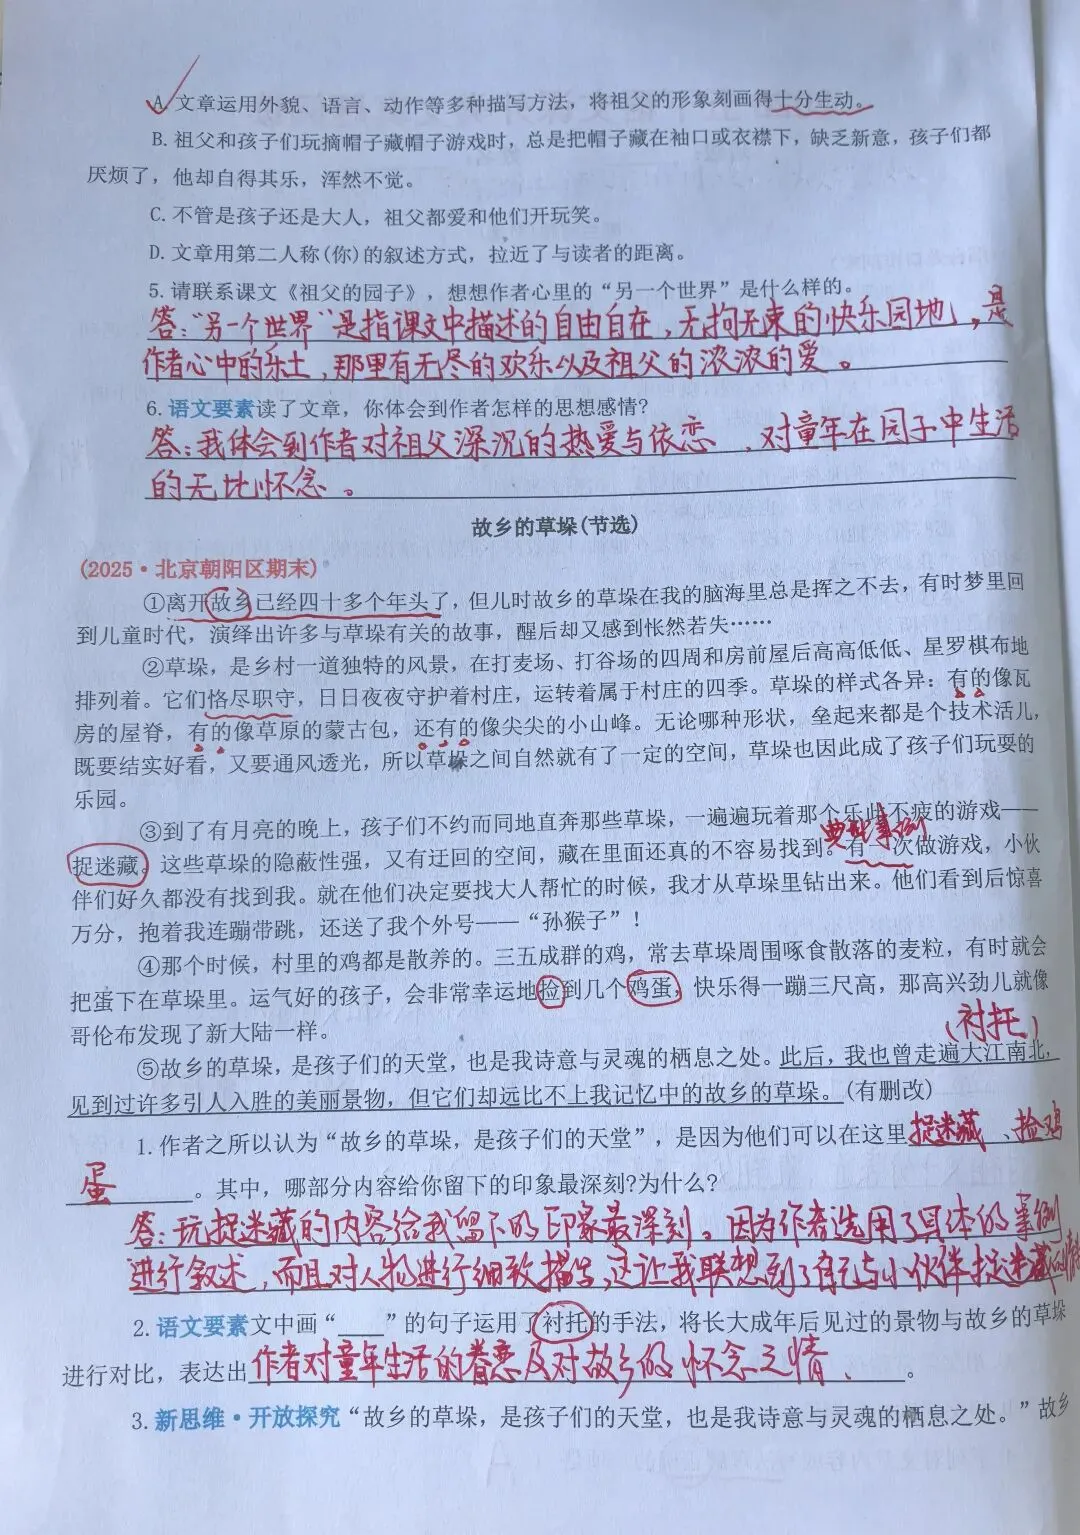 A. 文章运用外貌、语言、动作等多种描写方法，将祖父的形象刻画得十分生动。
B. 祖父和孩子们玩摘帽子藏帽子游戏时，总是把帽子藏在袖口或衣襟下，缺乏新意，孩子们都
厌烦了，他却自得其乐，浑然不觉。
C. 不管是孩子还是大人，祖父都爱和他们开玩笑。
D. 文章用第二人称(你)的叙述方式，拉近了与读者的距离。
5. 请联系课文《祖父的园子》，想想作者心里的“另一个世界”是什么样的。
答：“另一个世界”是指课文中描述的自由自在，无拘无束的快乐园地，是
作者心中的乐土，那里有无尽的欢乐以及祖父的浓浓的爱。
6. 语文要素读了文章，你体会到作者怎样的思想感情?
答：我体会到作者对祖父深沉的热爱与依恋、对童年在园子中生活
的无比怀念。
故乡的草垛(节选)
(2025·北京朝阳区期末)
①离开故乡已经四十多个年头了，但儿时故乡的草垛在我的脑海里总是挥之不去，有时梦里回
到儿童时代，演绎出许多与草垛有关的故事，醒后却又感到怅然若失……
②草垛，是乡村一道独特的风景，在打麦场、打谷场的四周和房前屋后高高低低、星罗棋布地
排列着。它们恪尽职守，日日夜夜守护着村庄，运转着属于村庄的四季。草垛的样式各异：有的像瓦
房的屋脊，有的像草原的蒙古包，还有的像尖尖的小山峰。无论哪种形状，垒起来都是个技术活儿，
既要结实好看，又要通风透光，所以草垛之间自然就有了一定的空间，草垛也因此成了孩子们玩耍的
乐园。
③到了有月亮的晚上，孩子们不约而同地直奔那些草垛，一遍遍玩着那个乐此不疲的游戏——
典型事例
捉迷藏。这些草垛的隐蔽性强，又有迂回的空间，藏在里面还真的不容易找到。有一次做游戏，小伙
伴们好久都没有找到我。就在他们决定要找大人帮忙的时候，我才从草垛里钻出来。他们看到后惊喜
万分，抱着我连蹦带跳，还送了我个外号——“孙猴子”！
④那个时候，村里的鸡都是散养的。三五成群的鸡，常去草垛周围啄食散落的麦粒，有时就会
把蛋下在草垛里。运气好的孩子，会非常幸运地捡到几个鸡蛋，快乐得一蹦三尺高，那高兴劲儿就像
哥伦布发现了新大陆一样。
(衬托)
⑤故乡的草垛，是孩子们的天堂，也是我诗意与灵魂的栖息之处。此后，我也曾走遍大江南北，
见到过许多引人入胜的美丽景物，但它们却远比不上我记忆中的故乡的草垛。(有删改)
1. 作者之所以认为“故乡的草垛，是孩子们的天堂”，是因为他们可以在这里捉迷藏、捡鸡
蛋。其中，哪部分内容给你留下的印象最深刻?为什么?
答：玩捉迷藏的内容给我留下的印象最深刻。因为作者选用了具体的事例
进行叙述，而且对人物进行细致描写，这让我联想到了自己与小伙伴捉迷藏的情
2. 语文要素文中画“____”的句子运用了衬托的手法，将长大成年后见过的景物与故乡的草垛
进行对比，表达出作者对童年生活的眷恋及对故乡的怀念之情。
3. 新思维·开放探究“故乡的草垛，是孩子们的天堂，也是我诗意与灵魂的栖息之处。”故乡